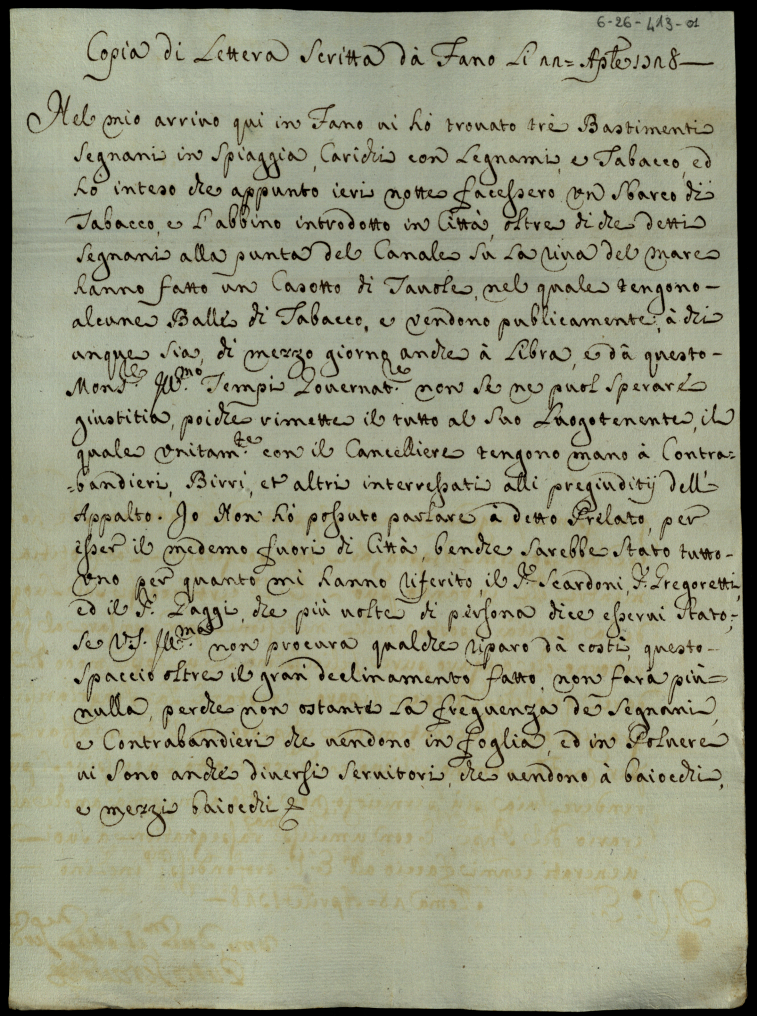 6-26-413-01
Copia di Lettera Scritta dà Fano Li 11= Aple 1718
Nel mio arrivo qui in Fano vi hò trovato trè Bastimenti
Segnani in Spiaggia, Carichi con Legnami, e Tabacco, ed
hò inteso che appunto ieri notte facessero un Sbarco di
Tabacco, e l'abbino introdotto in Città, oltre di che detti
Segnani alla punta del Canale sù la riva del mare
hanno fatto un Casotto di Tavole, nel quale tengono-
alcune Balle di Tabacco, e vendono publicamente, à chi
unque sia, di mezzo giorno anche à Libra, e dà questo-
Monsre. Illmo. Tempi Governatre. non se ne può sperare
giustitia, poiche rimette il tutto al suo Luogotenente, il
quale unitamte. con il Cancelliere tengono mano à Contra=
=bandieri, Birri, et altri interressati alli pregiuditij dell'
Appalto. Io Non hò possuto parlare à detto Prelato, per
esser il medemo fuori di Città, benche sarebbe stato tutto-
uno per quanto mi hanno riferito, il Sr. Scardoni, Sr. Gregoretti,
ed il Sr. Paggi, che più volte di persona dice esservi stato;
se V.S. Illma. non procura qualche riparo dà costì, questo-
spaccio oltre il gran declinamento fatto, non farà più=
nulla, perche non ostante la frequenza de Segnani,
e Contrabandieri che vendono in foglia, ed in Polvere
vi sono anche diversi servitori, che vendono à baiocchi,
e mezzi baiocchi